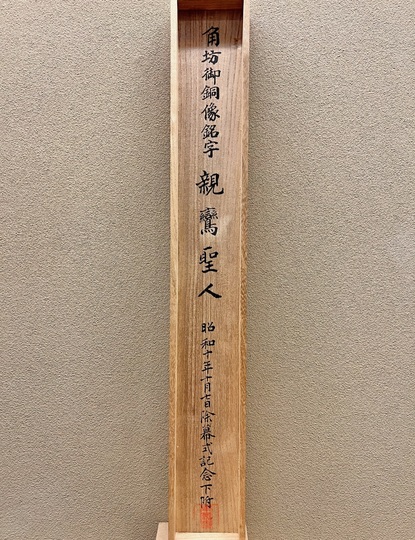 角坊御銅像銘字 親鸞聖人 昭和十年十月七日除幕式記念下附